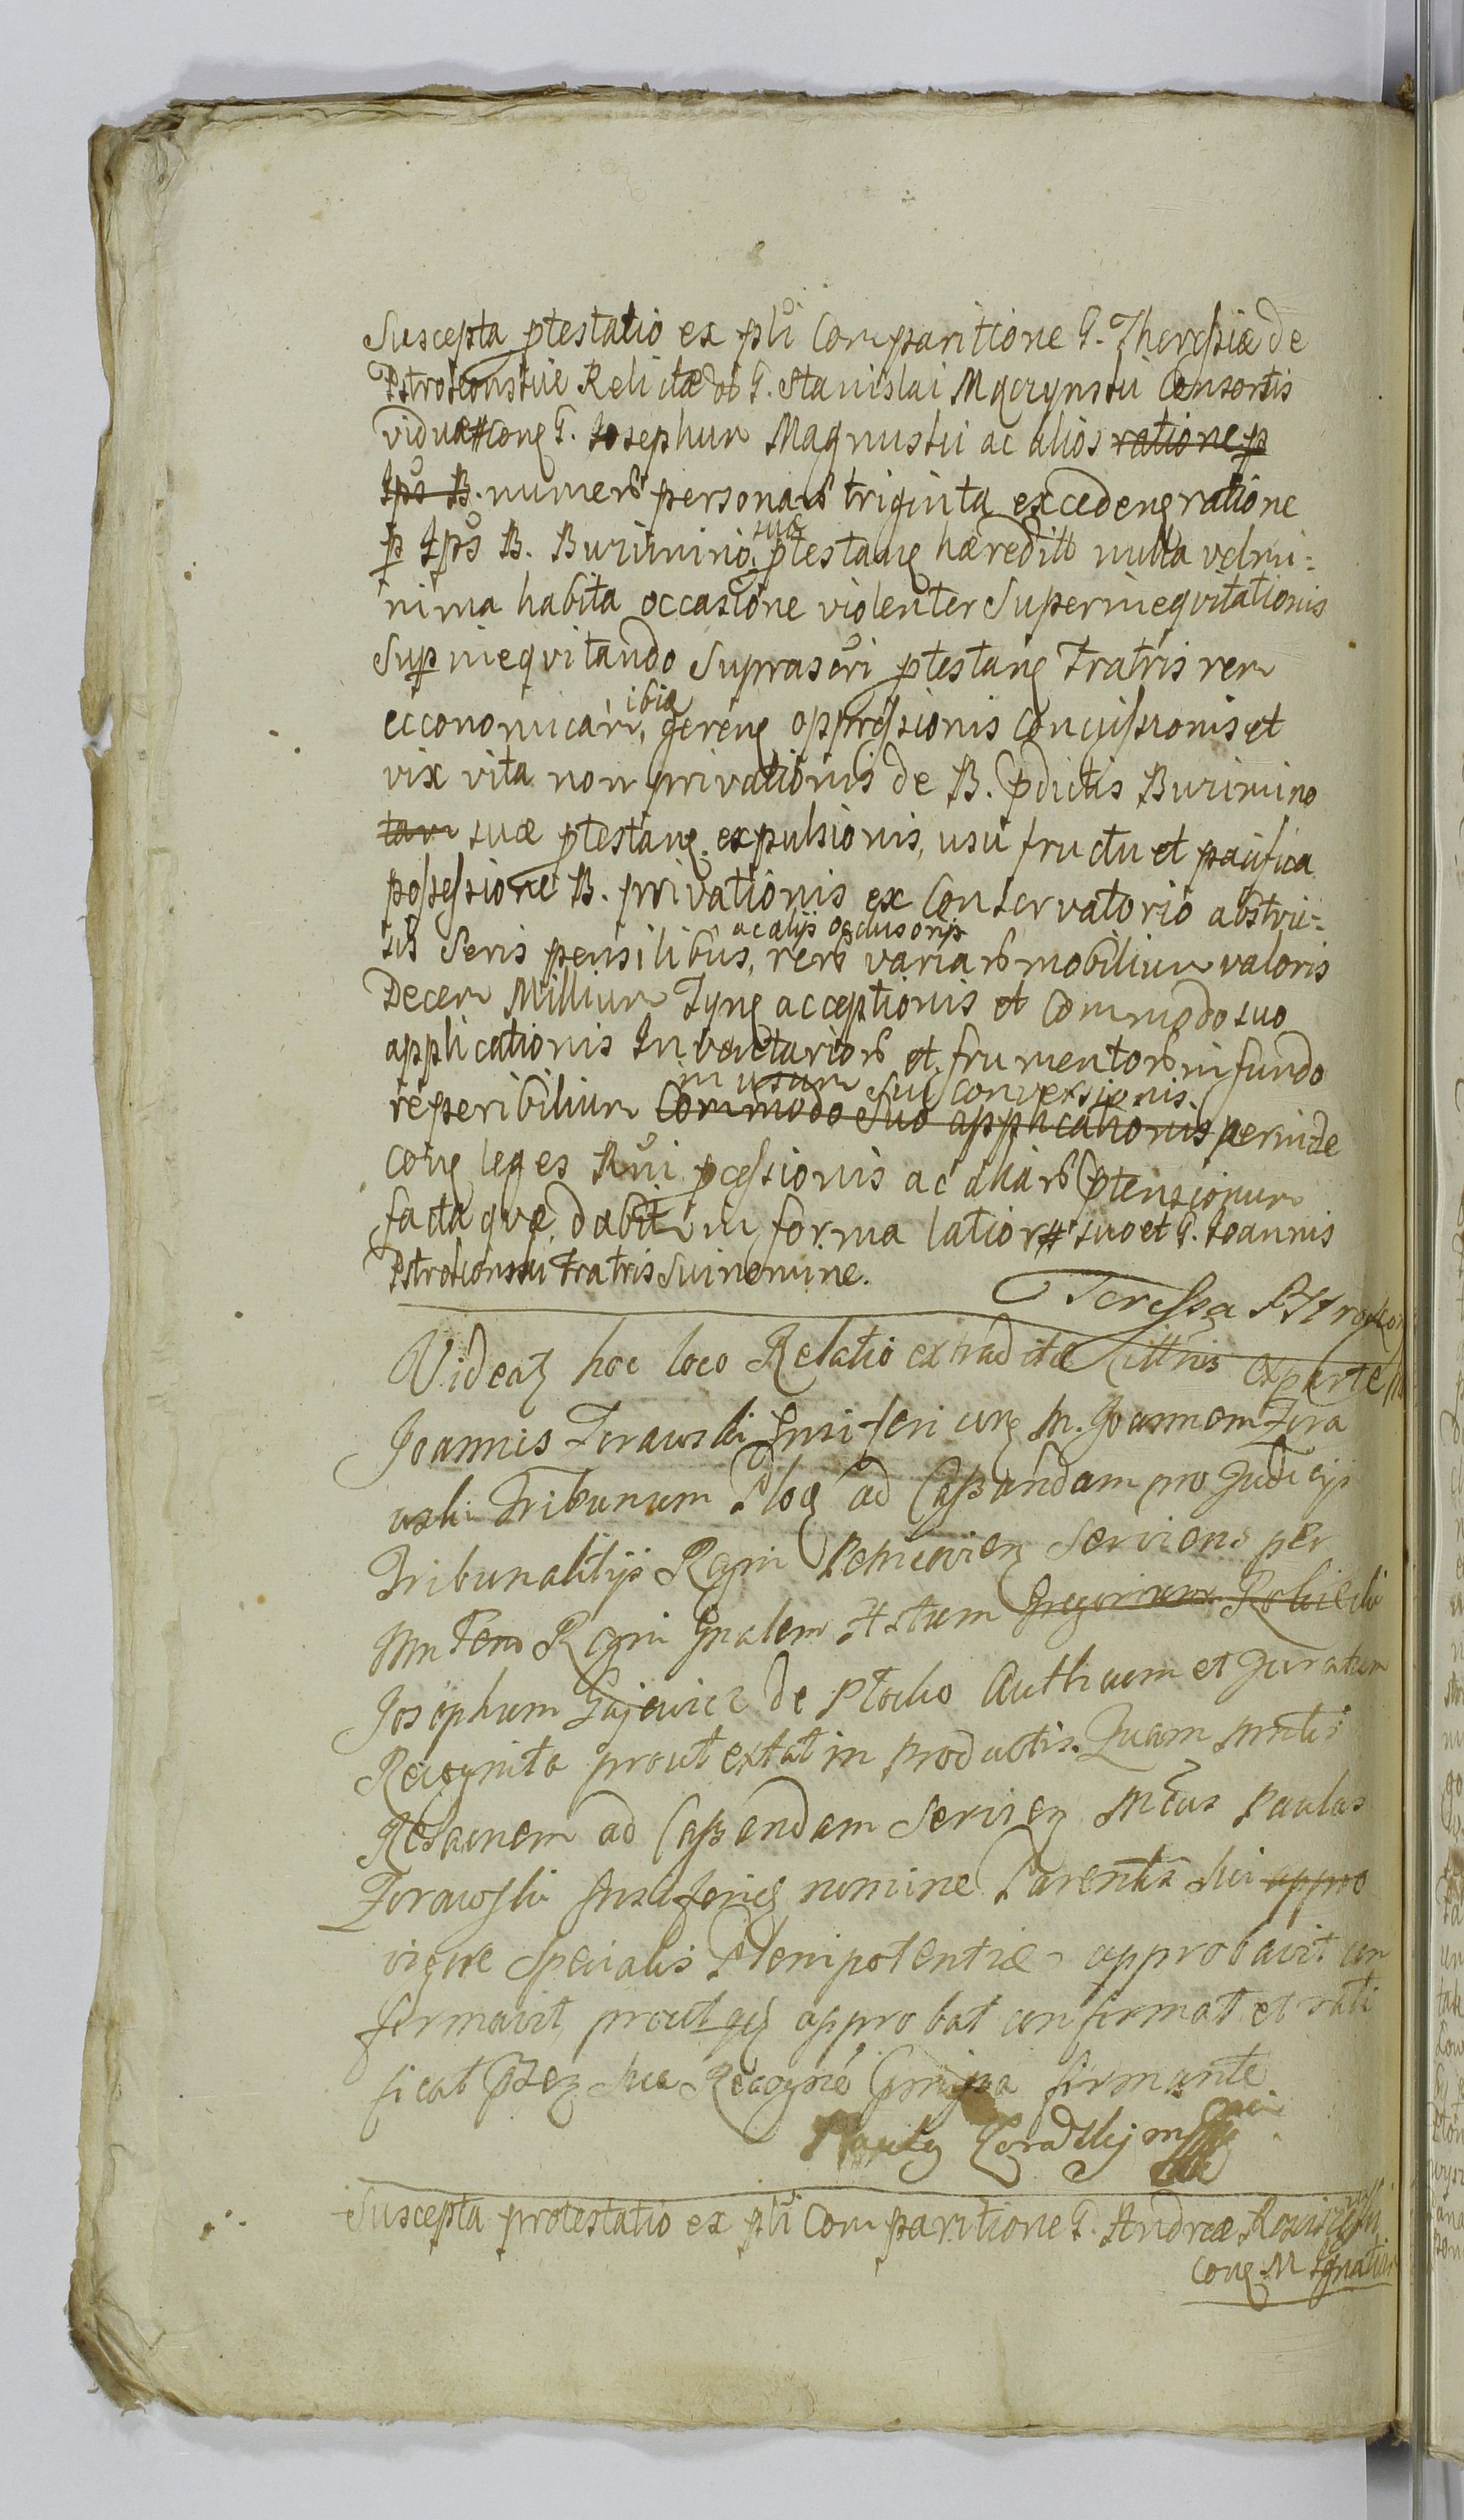 Suscepta ptestatio ex pti Comparitione G. Theressiæ de
Pstrokonskie Relictæ ol G. Stanislai Mączynski Consortis
viduæ # cong G. Josephum Magnuski ac alios ratione p
Ips B. numero personaro triginta excedeng ratione
p Ips B. Burimino, sua ptestang hæredit nulla velmi-
nima habita occasione violenter Superineqvitationis
Sup ineqvitando Suprascri ptestang Fratris rem
ecconomicam, ibiq gereng oppressionis Concussionis et
vix vita non privationis de B. pdictis Burimino
tam suæ ptestang expulsionis, usu fructu et pacifica
possessione B. privationis ex Conservatorio abstru-
sis Seris pensilibus, ac alijs oclusorijs rero variaro mobilium valoris
Decem Millium Tyng acceptionis et Commodo suo
applicationis Inventarioro et frumentoro in fundo
reperibilium in usum sui conversionis Commodo Suo applicationis perinde
cong leges Rni pcessionis ac aliaro ptensionum
facta qvæ dabit in forma latiori # suo et G. Joannis
Pstrokonski Fratris Sui nomine.
Teressa Pstrokon
Videatz hoc loco Relatio extraditæ Littris ex parte M
Joannis Zorawski Ensiferi cong M. Joannem Zora
wski Tribunum Plog ad Cassandam pro Judicijs
Tribunalitijs Regni Petricovieng Serviens per
Mntem Regni Gnalem Actum Gregorium Robiecki
Josephum Gajewicz de Plocko Authicum et Juratum
Recognita prout extat in productis. Quam pntis
Relaōnem ad Cassandam Servieng Mcus Paulus
Zorawski Ensiferieg nomine Parentis Sui appro
vigore Specialis Plenipotentiæ approbavit con
firmavit, prout qz approbat confirmat et rati
ficat psez Sua Recogne Conspa firmante
Pauly Zoradskij mpp
Suscepta protestatio ex pti Comparitione G. Andreæ
cong M Ignatium